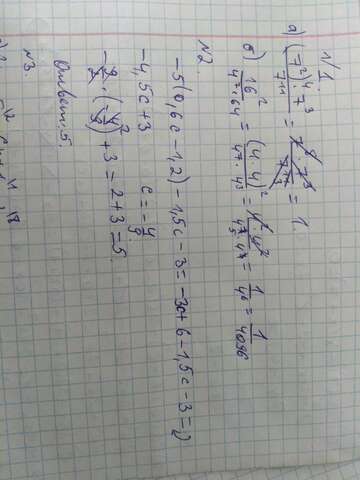 №1
а) (7²)⁴·7³/7¹¹ = 7⁸·7³/7¹¹ = 1.
б) 16²/4⁷·64 = (4·4)²/4⁷·4³ = 4²·4²/4⁷·4³ = 1/4⁶ = 1/4096
№2.
-5(0,6c-1,2)-1,5c-3=-3c+6-1,5c-3=>
-4,5c+3 c=-4/9
-9/2·(-4/9)+3=2+3=5.
Ответ: 5.
№3.